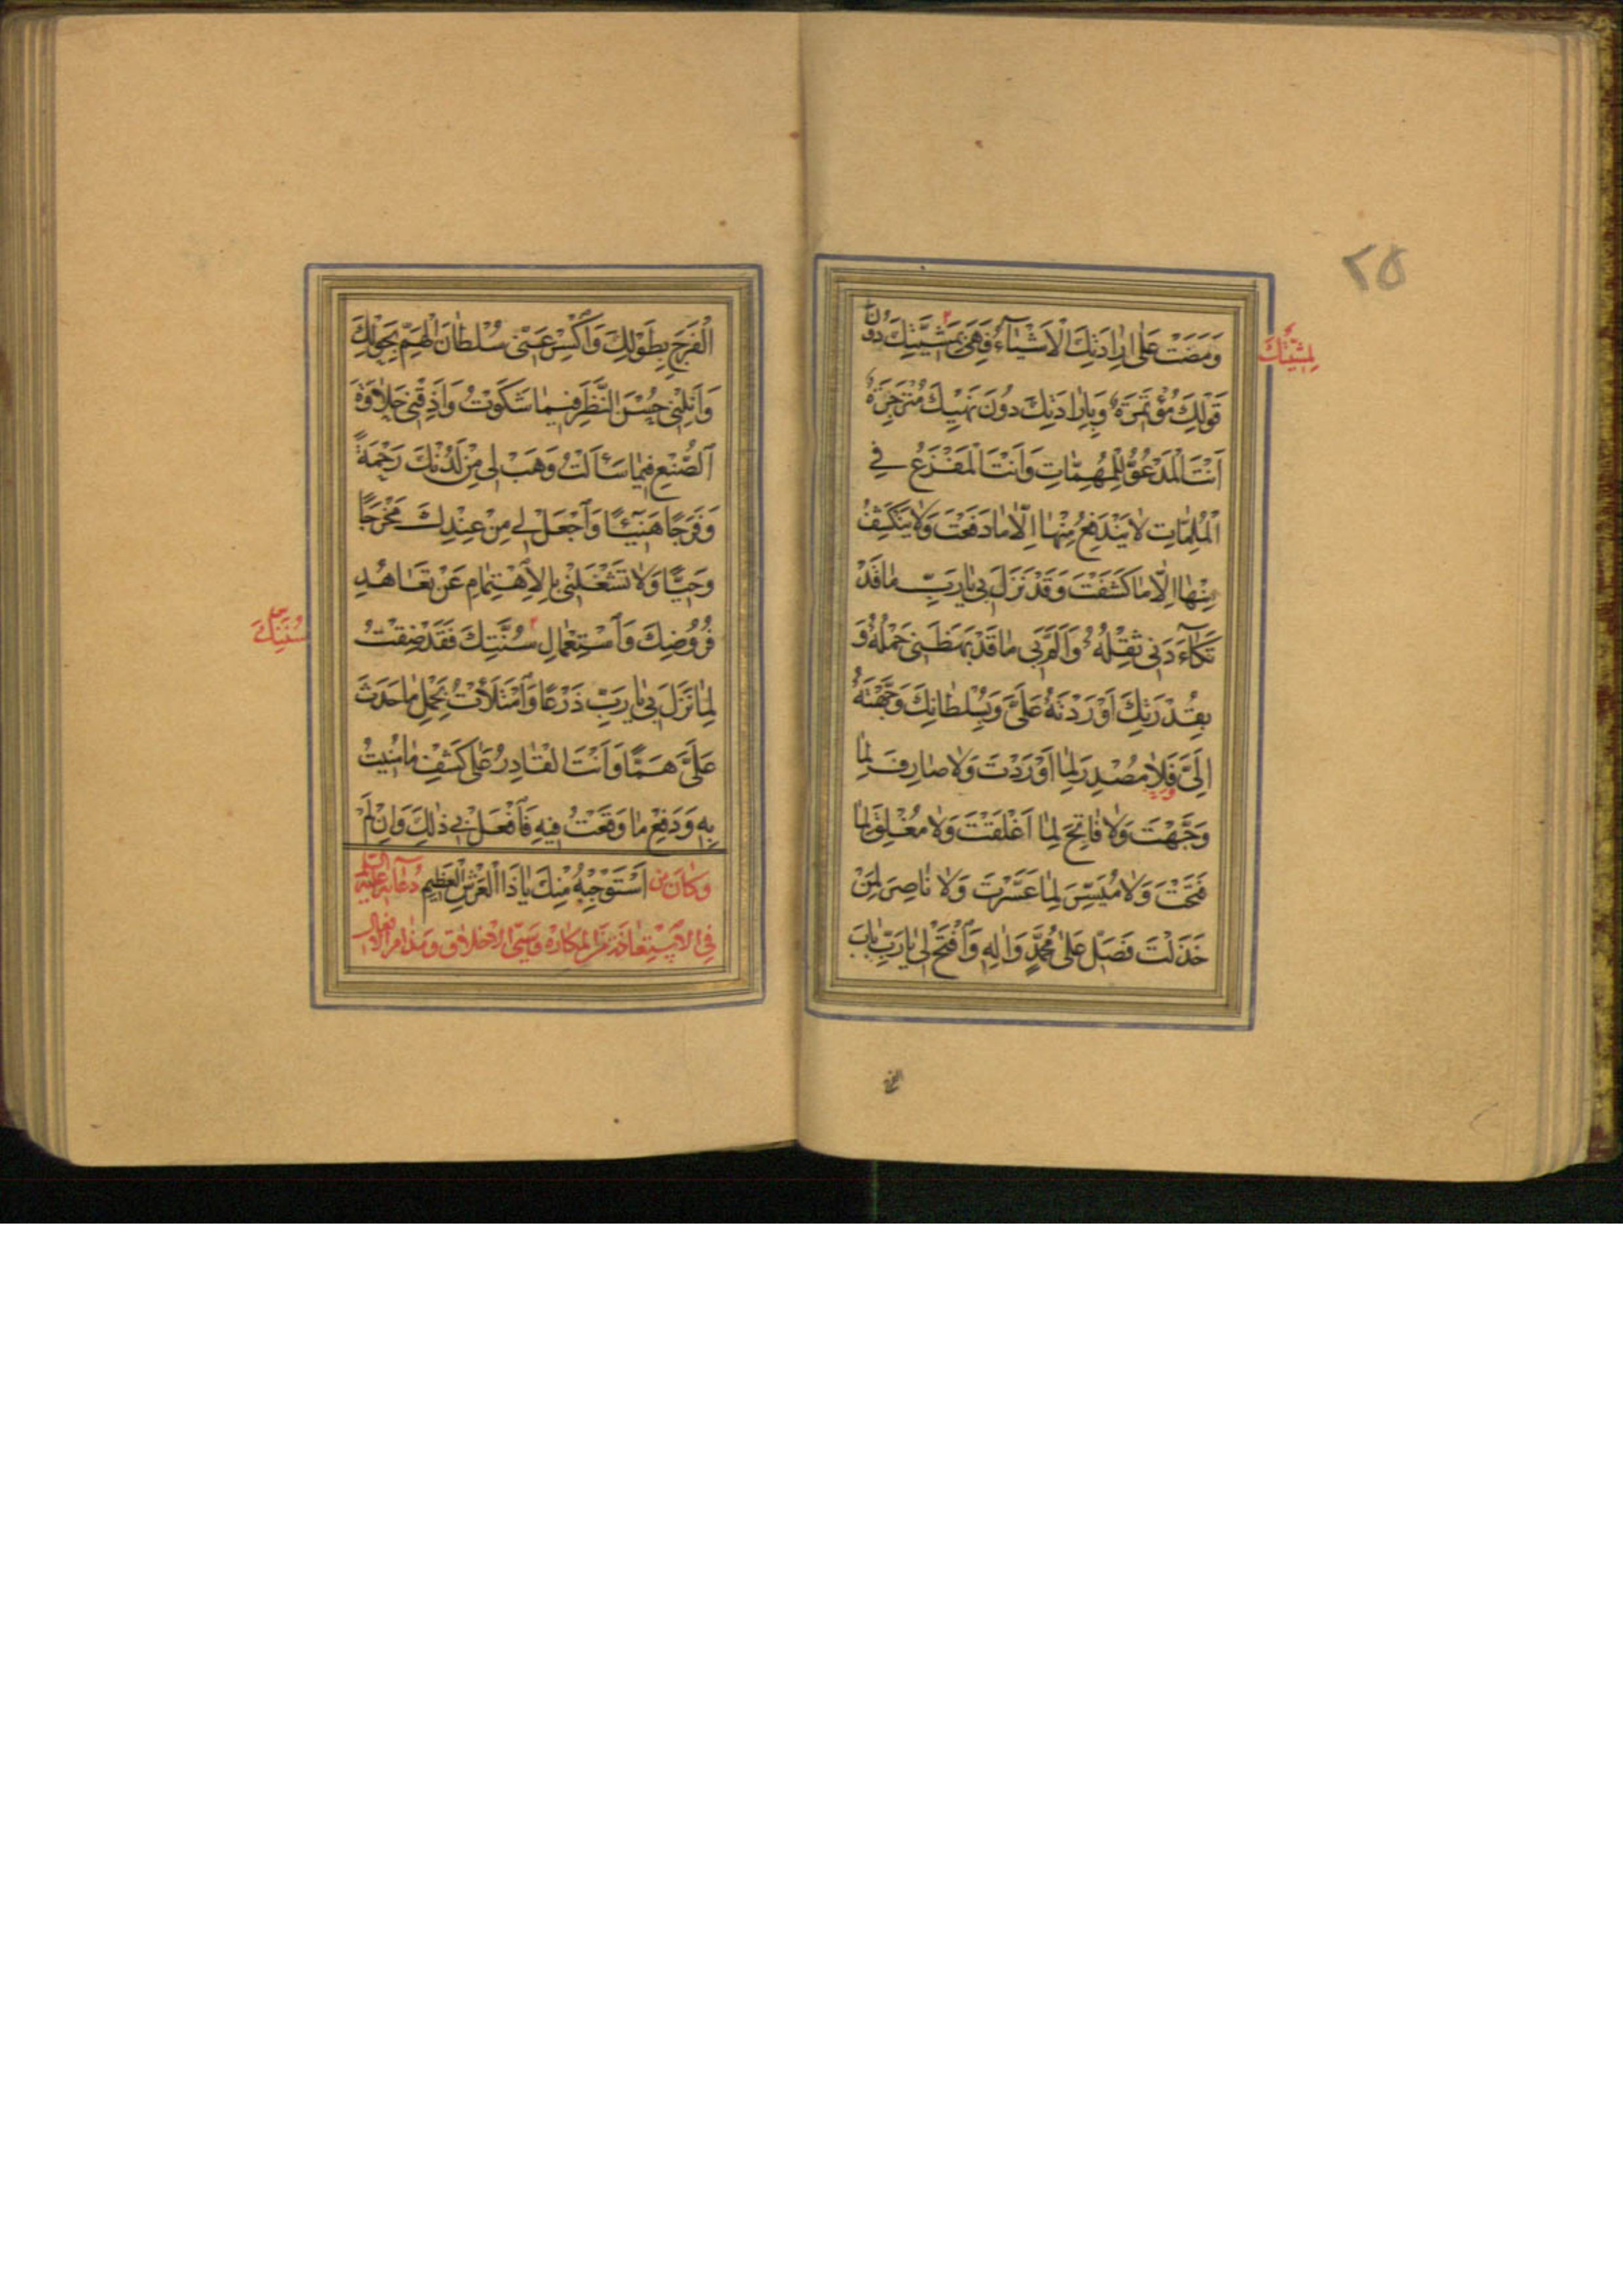 ۲۵
وَمَضَتْ عَلٰى اِرٰادَتِكَ الْاَشْيٰآءُ فَهِىَ بِمَشِيَّتِكَ دُونَ
لِمَشِيَّتِكَ
قَوْلِكَ مُؤْتَمِرَةٌ وَبِاِرٰادَتِكَ دُونَ نَهْيِكَ مُنْزَجِرَةٌ
اَنْتَ الْمَدْعُوُّ لِلْمُهِمّٰاتِ وَاَنْتَ الْمَفْزَعُ فِى
الْمُلِمّٰاتِ لٰا يَنْدَفِعُ مِنْهٰا اِلّٰا مٰا دَفَعْتَ وَلٰا يَنْكَشِفُ
مِنْهٰا اِلّٰا مٰا كَشَفْتَ وَقَدْ نَزَلَ بى يٰا رَبِّ مٰا قَدْ
تَكَأَّدَنى ثِقْلُهُ وَاَلَمَّ بى مٰا قَدْ بَهَظَنى حَمْلُهُ وَ
بِقُدْرَتِكَ اَوْرَدْتَهُ عَلَىَّ وَبِسُلْطٰانِكَ وَجَّهْتَهُ
اِلَىَّ فَلٰا مُصْدِرَ لِمٰا اَوْرَدْتَ وَلٰا صٰارِفَ لِمٰا
وَجَّهْتَ وَلٰا فٰاتِحَ لِمٰا اَغْلَقْتَ وَلٰا مُغْلِقَ لِمٰا
فَتَحْتَ وَلٰا مُيَسِّرَ لِمٰا عَسَّرْتَ وَلٰا نٰاصِرَ لِمَنْ
خَذَلْتَ فَصَلِّ عَلٰى مُحَمَّدٍ وَاٰلِهِ وَافْتَحْ لى يٰا رَبِّ بٰابَ
الْفَرَجِ بِطَوْلِكَ وَاكْسِرْ عَنّى سُلْطٰانَ الْهَمِّ بِحَوْلِكَ
وَاَنِلْنى حُسْنَ النَّظَرِ فيمٰا شَكَوْتُ وَاَذِقْنى حَلٰاوَةَ
الصُّنْعِ فيمٰا سَاَلْتُ وَهَبْ لى مِنْ لَدُنْكَ رَحْمَةً
وَفَرَجًا هَنيئًا وَاجْعَلْ لى مِنْ عِنْدِكَ مَخْرَجًا
وَحِيًّا وَلٰا تَشْغَلْنى بِالْاِهْتِمٰامِ عَنْ تَعٰاهُدِ
فُرُوضِكَ وَاسْتِعْمٰالِ سُنَّتِكَ فَقَدْ ضِقْتُ
سُنَنِكَ
لِمٰا نَزَلَ بى يٰا رَبِّ ذَرْعًا وَامْتَلَأْتُ بِحَمْلِ مٰا حَدَثَ
عَلَىَّ هَمًّا وَاَنْتَ الْقٰادِرُ عَلٰى كَشْفِ مٰا مُنيتُ
بِهِ وَدَفْعِ مٰا وَقَعْتُ فيهِ فَافْعَلْ بى ذٰلِكَ وَاِنْ لَمْ
اَسْتَوْجِبْهُ مِنْكَ يٰا ذَا الْعَرْشِ الْعَظيمِ
وَكٰانَ مِنْ دُعٰائِهِ عَلَيْهِ السَّلٰم
فِى الْاِسْتِعٰاذَةِ مِنَ الْمَكٰارِهِ وَسَيِّئِ الْاَخْلٰاقِ وَمَذٰامِّ الْاَفْعٰالِ
الفرج